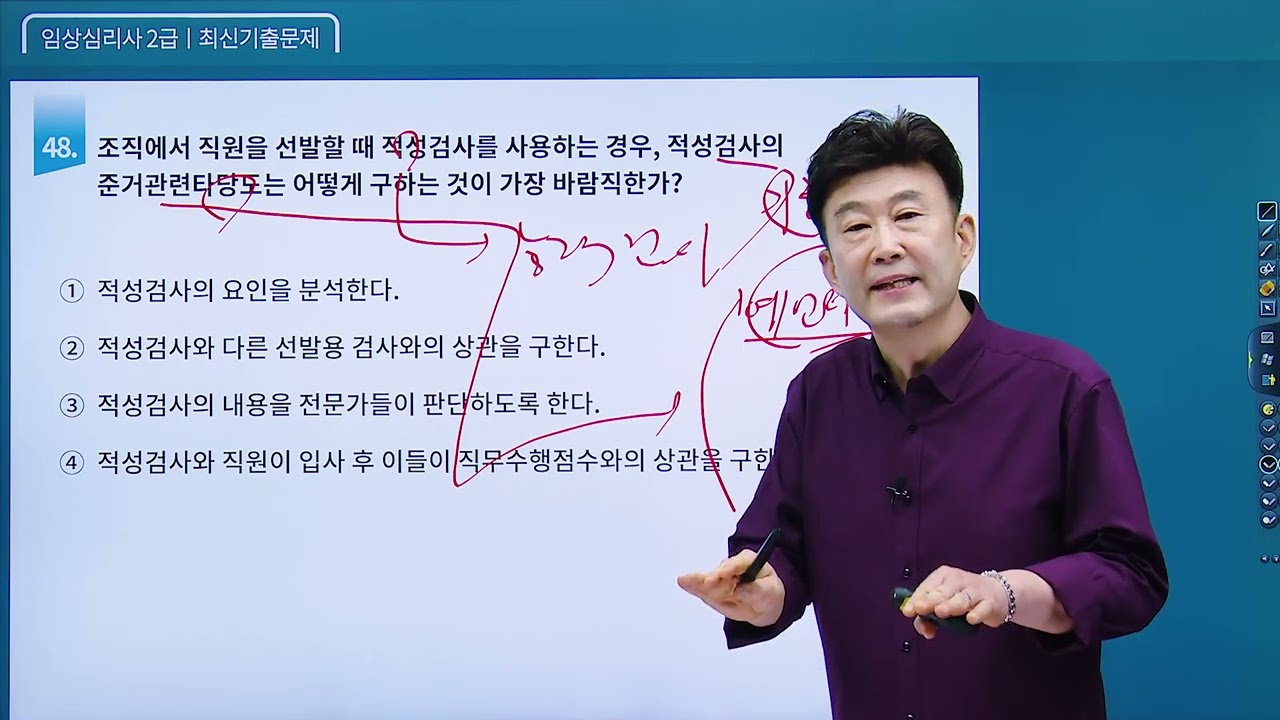 임상심리사 2급 | 최신기출문제
48. 조직에서 직원을 선발할 때 적성검사를 사용하는 경우, 적성검사의
준거관련타당도는 어떻게 구하는 것이 가장 바람직한가?
① 적성검사의 요인을 분석한다.
② 적성검사와 다른 선발용 검사와의 상관을 구한다.
③ 적성검사의 내용을 전문가들이 판단하도록 한다.
④ 적성검사와 직원이 입사 후 이들이 직무수행점수와의 상관을 구한